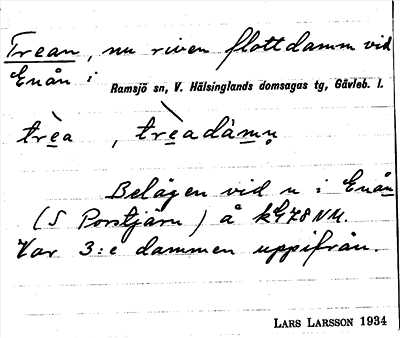 Trean, nu riven flottdamm vid
Enån i
Ramsjö sn, V. Hälsinglands domsagas tg, Gävleb. l.
trèa , trèadàmn̥
Belägen vid u i Enån
(S Porstjärn) å kG78NM.
Var 3:e dammen uppifrån.
LARS LARSSON 1934